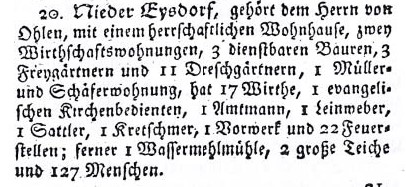 20. Nieder Eysdorf, gehört dem Herrn von
Ohlen, mit einem herrschaftlichen Wohnhause, zwey
Wirthschaftswohnungen, 3 dienstbaren Bauren, 3
Freygärtnern und 11 Dreschgärtnern, 1 Müller-
und Schäferwohnung, hat 17 Wirthe, 1 evangeli-
schen Kirchenbedienten, 1 Amtmann, 1 Leinweber,
1 Sattler, 1 Kretschmer, 1 Vorwerk und 22 Feuer-
stellen; ferner 1 Wassermehlmühle, 2 große Teiche
und 127 Menschen.